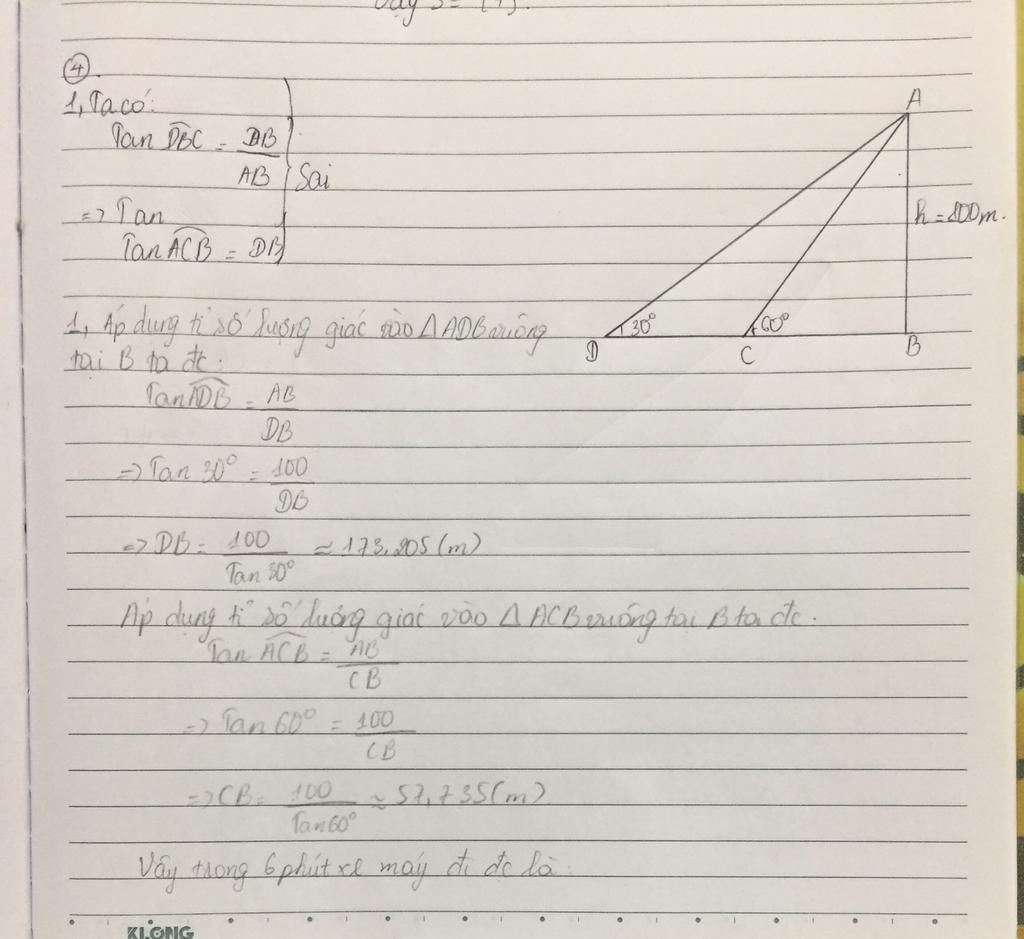 Vậy S = {1}.
④.
1, Ta có:
Tan DBC = DB
AB
Sai
=> Tan
Tan ACB = DB
A
h = 100m.
30°
60°
D
C
B
1, Áp dụng tỉ số lượng giác vào △ADB vuông
tại B ta đc:
Tan ADB = AB
DB
=> Tan 30° = 100
DB
=> DB = 100 ≈ 173,205 (m)
Tan 30°
Áp dụng tỉ số lượng giác vào △ ACB vuông tại B ta đc.
Tan ACB = AB
CB
=> Tan 60° = 100
CB
=> CB = 100 ≈ 57,735 (m)
Tan 60°
Vậy trong 6 phút xe máy đi đc là:
KLONG